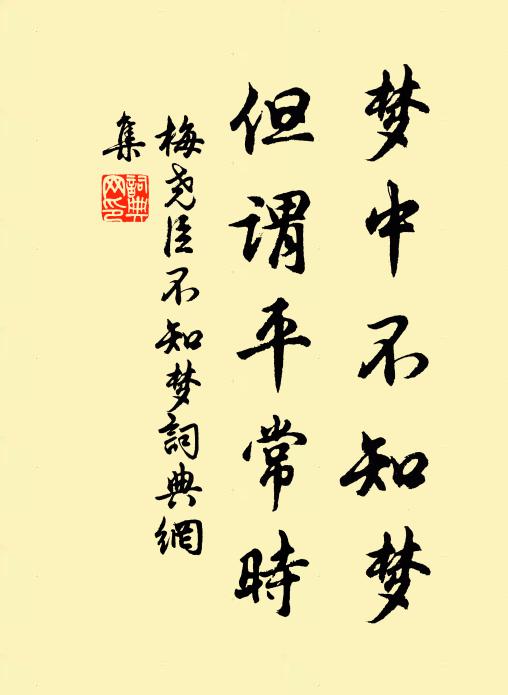 梦中不知梦
但謂平常時
梅尧臣不知梦詞典網
集
詞典
网印